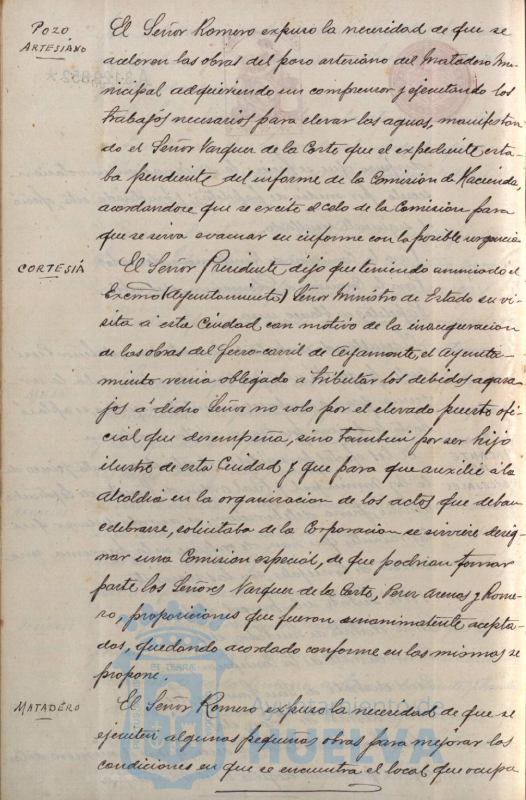 POZO
ARTESIANO
El Señor Romero expuso la necesidad de que se
aceleren las obras del pozo artesiano del Matadero Mu-
nicipal adquiriendo un compresor y ejecutando los
trabajos necesarios para elevar las aguas, manifestan-
do el Señor Vazquez de la Corte que el expediente esta-
ba pendiente del informe de la Comision de Hacienda,
acordandose que se excite el celo de la Comisión para
que se sirva evacuar su informe con la posible urgencia
CORTESIA
El Señor Presidente dijo que teniendo anunciado el
Excmo (Ayuntamiento) Señor Ministro de Estado su vi-
sita á esta Ciudad con motivo de la inauguracion
de las obras del ferro-carril de Ayamonte, el Ayunta-
miento venia obligado a tributar los debidos agasa-
jos á dicho Señor no solo por el elevado puesto ofi-
cial que desempeña, sino tambien por ser hijo
ilustre de esta Ciudad y que para que auxilie á la
alcaldia en la organizacion de los actos que deban
celebrarse, solicitaba de la Corporacion se sirviese desig-
nar una Comision especial, de que podrian formar
parte los Señores Vazquez de la Corte, Perez Arenas y Rome-
ro, proposiciones que fueron unanimamente acepta-
das, quedando acordado conforme en las mismas se
propone.
MATADERO
El Señor Romero expuso la necesidad de que se
ejecuten algunas pequeñas obras para mejorar las
condiciones en que se encuentra el local que ocupa
HUELVA